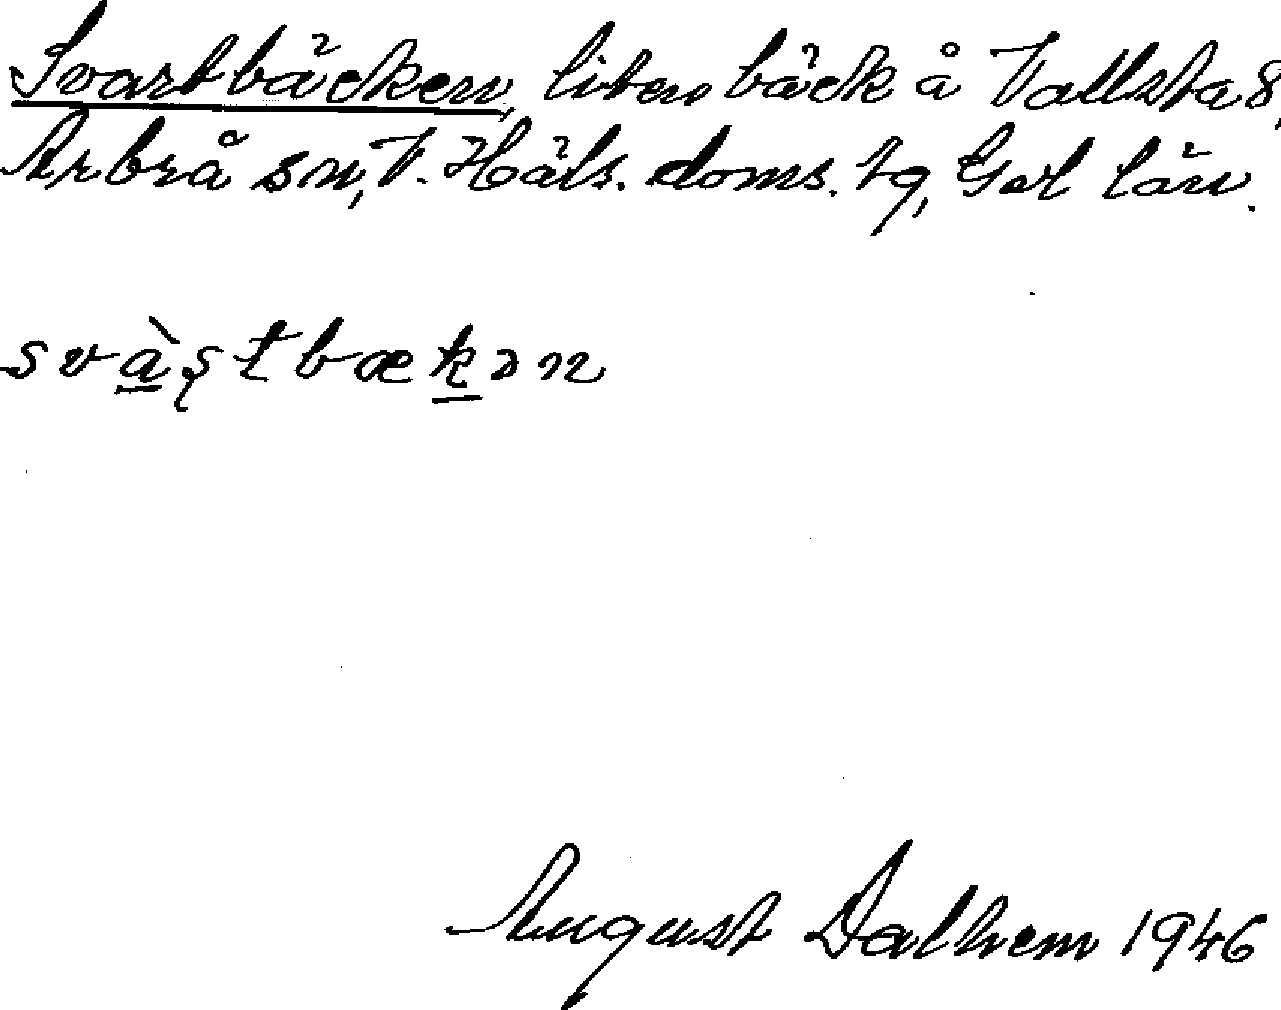 Svartbäcken, liten bäck å Vallsta 8,
Arbrå sn, V. Häls. doms. tg, Gvl län.
svàştbækən
August Dalhem 1946